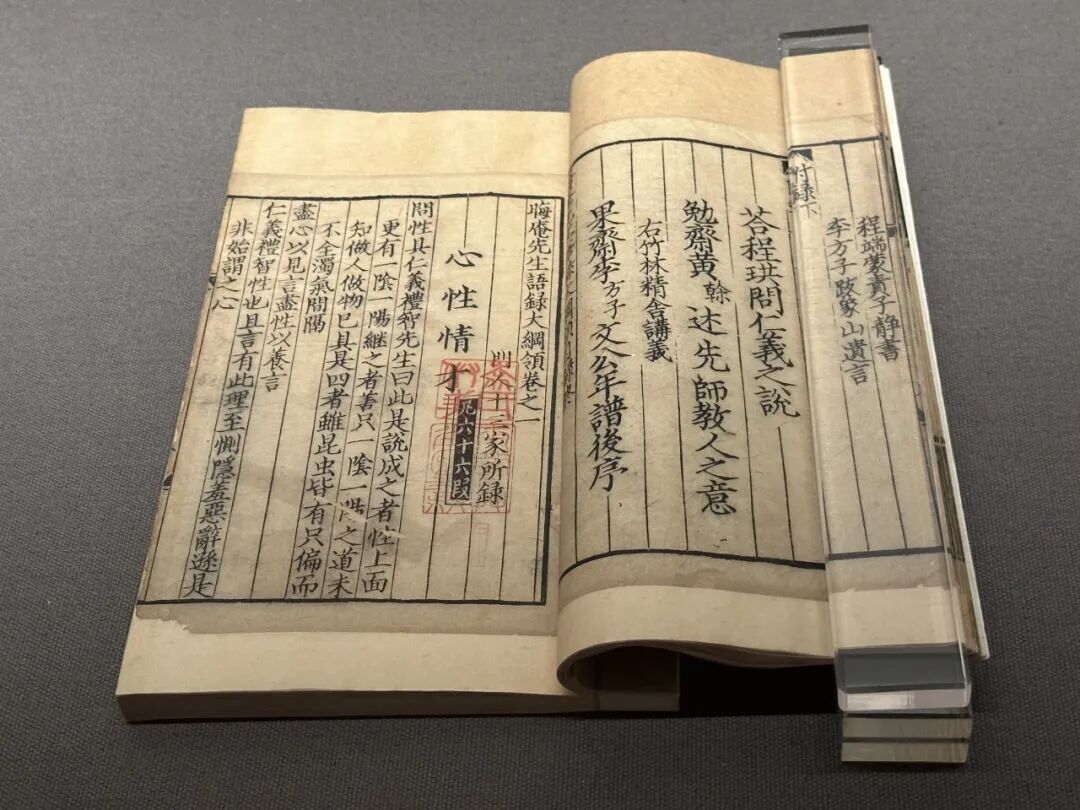 附錄下
程端蒙責子靜書
李方子跋象山遺言
荅程珙問仁義之說
勉齋黃榦述先師教人之意
右竹林精舍講義
果齋李方子文公年譜後序
晦庵先生語録大綱領卷之一
門人十三家所録
心性情才
凡六十六段
問性具仁義禮智先生曰此是說成之者性上面
更有一陰一陽継之者善只一陰一陽之道未
知做人做物已具是四者雖昆虫皆有只偏而
不全濁氣間隔
盡心以見言盡性以養言
仁義禮智性也且言有此理至惻隱羞惡辭遜是
非始謂之心